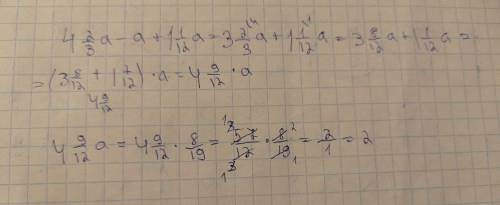 4 2/3 a − a + 1 1/12 a = 3 2/3 a + 1 1/12 a = 3 8/12 a + 1 1/12 a =
= (3 8/12 + 1 1/12) · a = 4 9/12 · a
4 9/12
4 9/12 a = 4 9/12 · 8/19 = 57/12 · 8/19 = 2/1 = 2